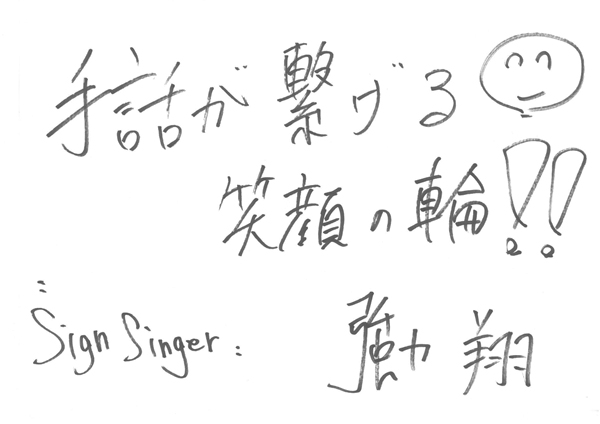 手話が繋げる
笑顔の輪!!
Sign Singer:
勥翔